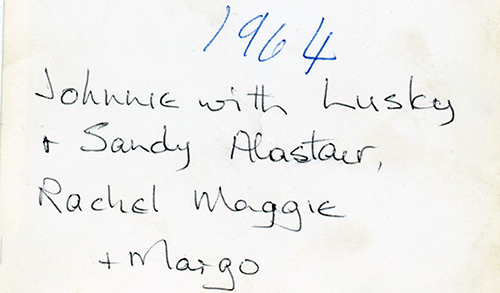 1964
Johnnie with Lusky
+ Sandy Alastair,
Rachel Maggie
+ Margo